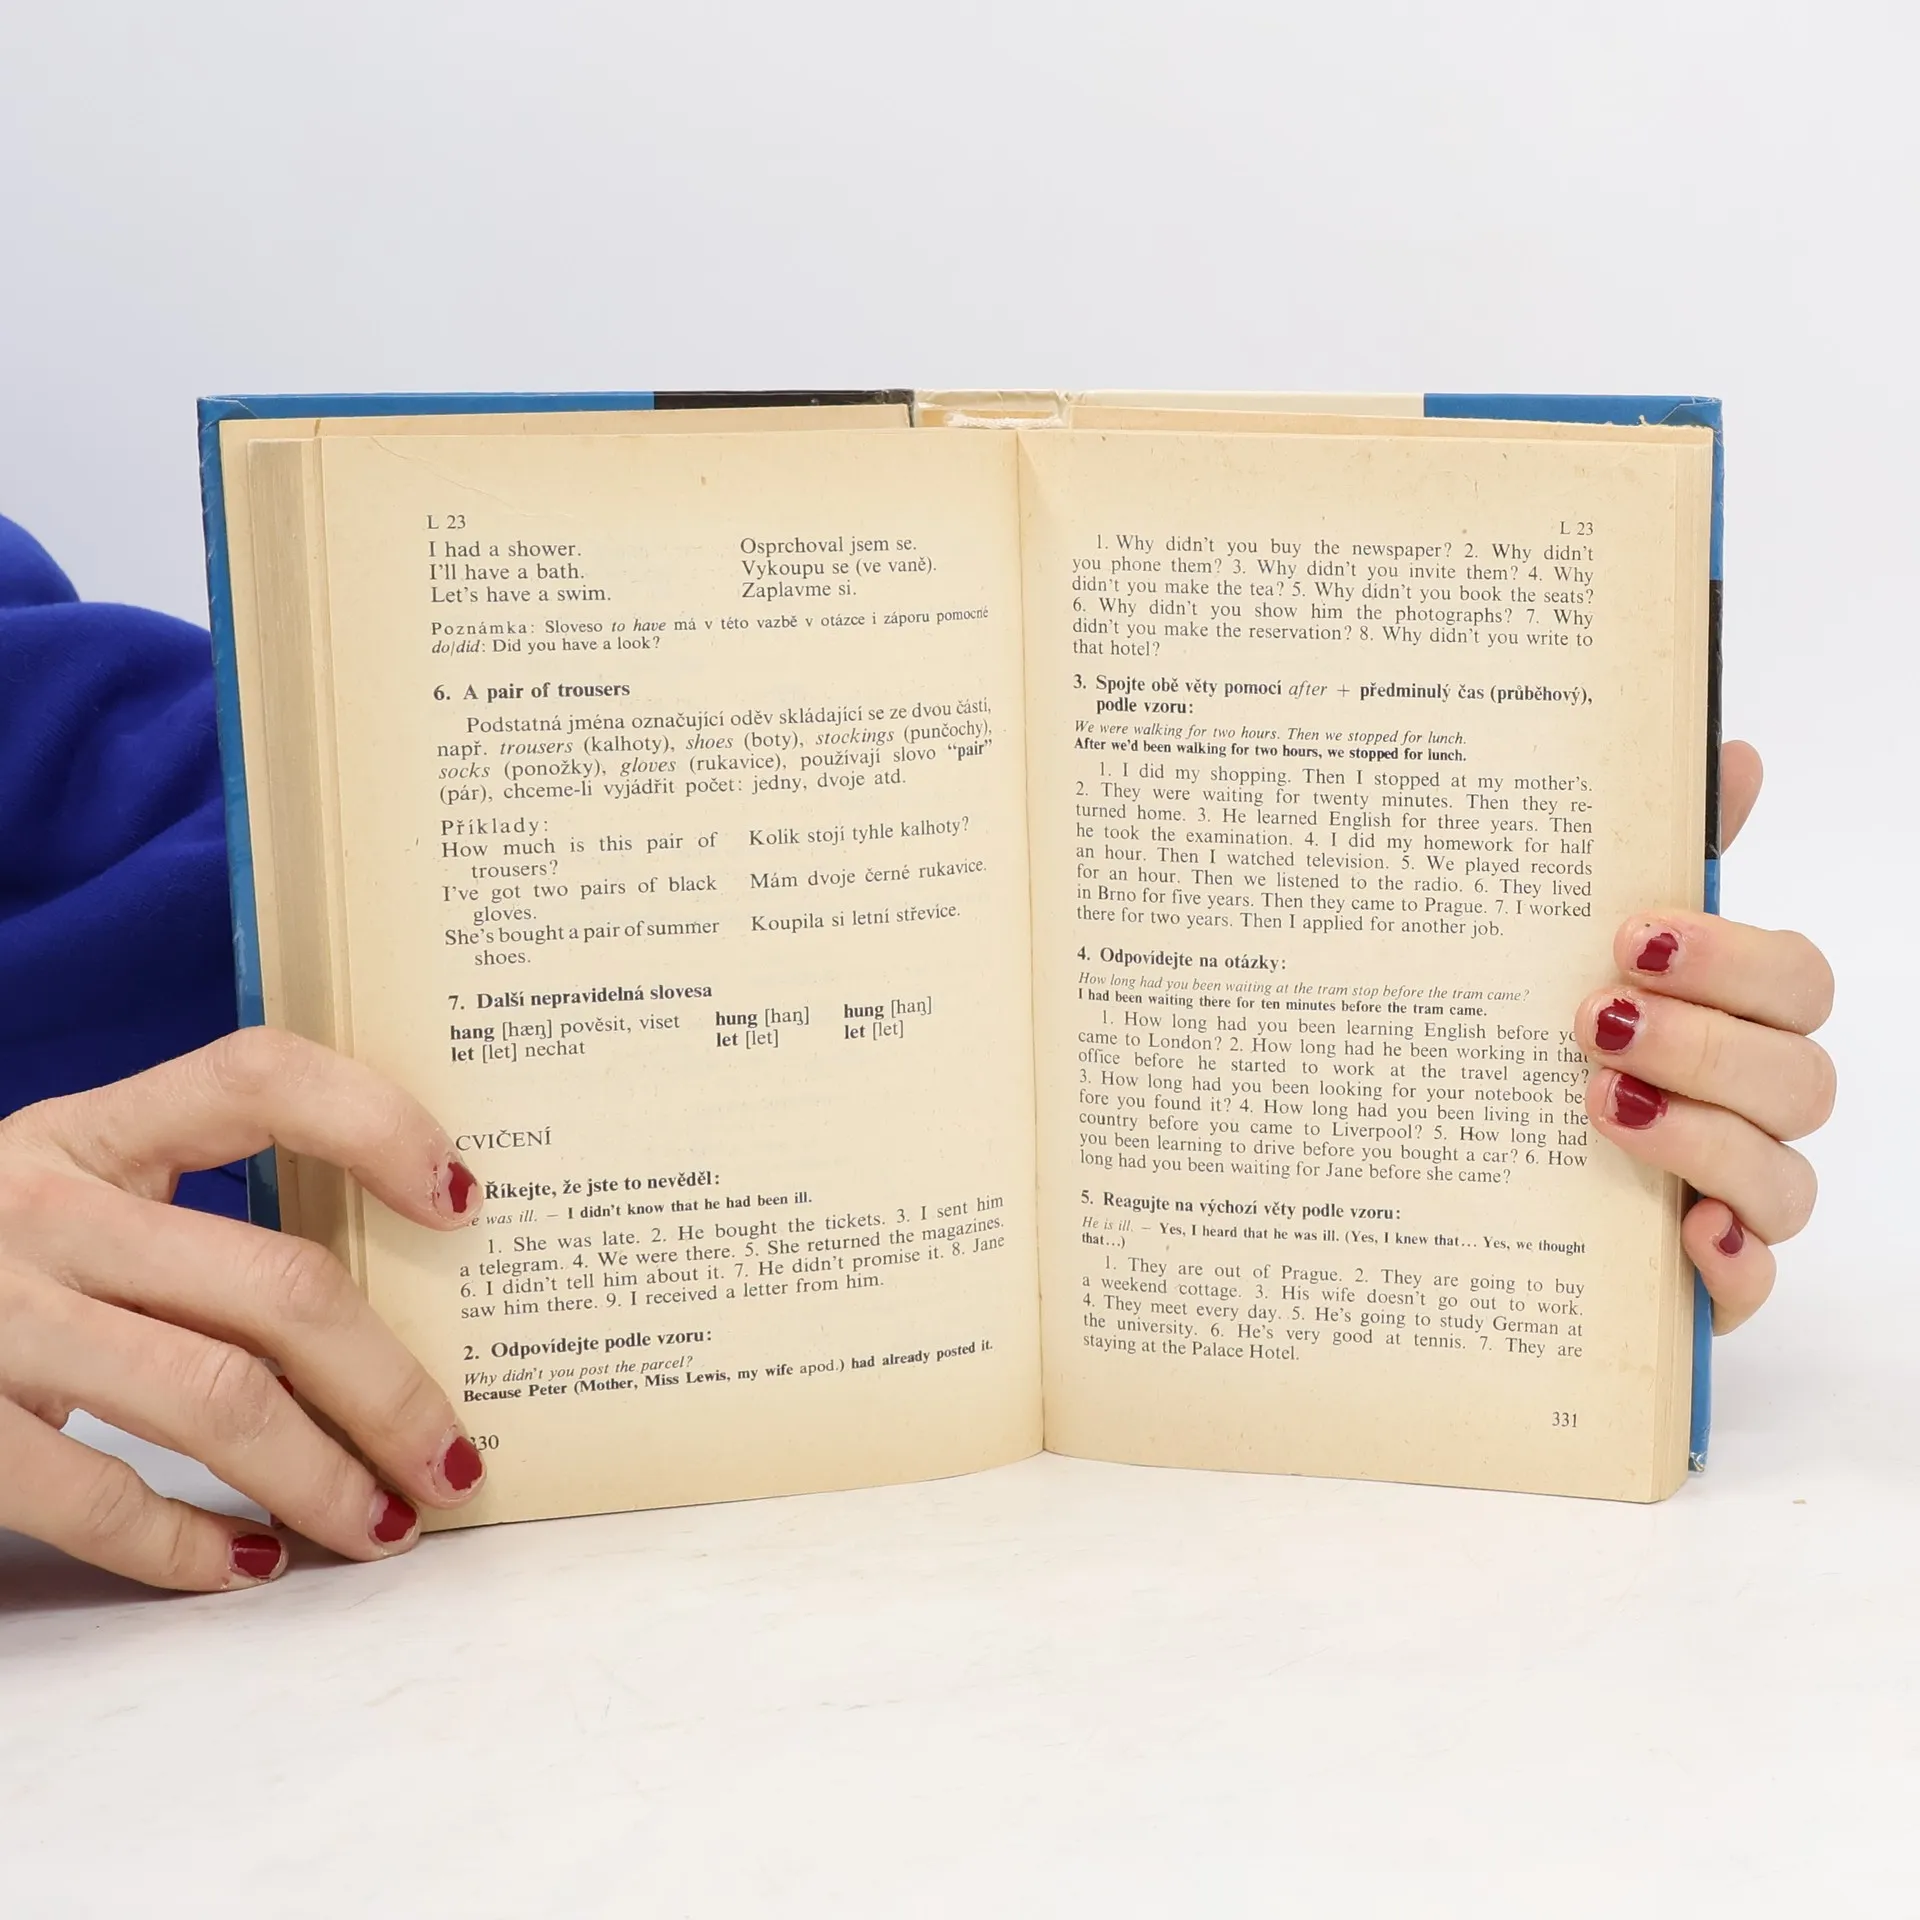 L 23
I had a shower. Osprchoval jsem se.
I'll have a bath. Vykoupu se (ve vaně).
Let's have a swim. Zaplavme si.
Poznámka: Sloveso to have má v této vazbě v otázce i záporu pomocné
do/did: Did you have a look?
6. A pair of trousers
Podstatná jména označující oděv skládající se ze dvou částí,
např. trousers (kalhoty), shoes (boty), stockings (punčochy),
socks (ponožky), gloves (rukavice), používají slovo “pair”
(pár), chceme-li vyjádřit počet: jedny, dvoje atd.
Příklady:
How much is this pair of Kolik stojí tyhle kalhoty?
trousers?
I've got two pairs of black Mám dvoje černé rukavice.
gloves.
She's bought a pair of summer Koupila si letní střevíce.
shoes.
7. Další nepravidelná slovesa
hang [hæŋ] pověsit, viset hung [haŋ] hung [haŋ]
let [let] nechat let [let] let [let]
CVIČENÍ
Říkejte, že jste to nevěděl:
was ill. — I didn't know that he had been ill.
1. She was late. 2. He bought the tickets. 3. I sent him
a telegram. 4. We were there. 5. She returned the magazines.
6. I didn't tell him about it. 7. He didn't promise it. 8. Jane
saw him there. 9. I received a letter from him.
2. Odpovídejte podle vzoru:
Why didn't you post the parcel?
Because Peter (Mother, Miss Lewis, my wife apod.) had already posted it.
330
L 23
1. Why didn't you buy the newspaper? 2. Why didn't
you phone them? 3. Why didn't you invite them? 4. Why
didn't you make the tea? 5. Why didn't you book the seats?
6. Why didn't you show him the photographs? 7. Why
didn't you make the reservation? 8. Why didn't you write to
that hotel?
3. Spojte obě věty pomocí after + předminulý čas (průběhový),
podle vzoru:
We were walking for two hours. Then we stopped for lunch.
After we'd been walking for two hours, we stopped for lunch.
1. I did my shopping. Then I stopped at my mother's.
2. They were waiting for twenty minutes. Then they re-
turned home. 3. He learned English for three years. Then
he took the examination. 4. I did my homework for half
an hour. Then I watched television. 5. We played records
for an hour. Then we listened to the radio. 6. They lived
in Brno for five years. Then they came to Prague. 7. I worked
there for two years. Then I applied for another job.
4. Odpovídejte na otázky:
How long had you been waiting at the tram stop before the tram came?
I had been waiting there for ten minutes before the tram came.
1. How long had you been learning English before yo
came to London? 2. How long had he been working in that
office before he started to work at the travel agency?
3. How long had you been looking for your notebook be-
fore you found it? 4. How long had you been living in the
country before you came to Liverpool? 5. How long had
you been learning to drive before you bought a car? 6. How
long had you been waiting for Jane before she came?
5. Reagujte na výchozí věty podle vzoru:
He is ill. — Yes, I heard that he was ill. (Yes, I knew that... Yes, we thought
that...)
1. They are out of Prague. 2. They are going to buy
a weekend cottage. 3. His wife doesn't go out to work.
4. They meet every day. 5. He's going to study German at
the university. 6. He's very good at tennis. 7. They are
staying at the Palace Hotel.
331